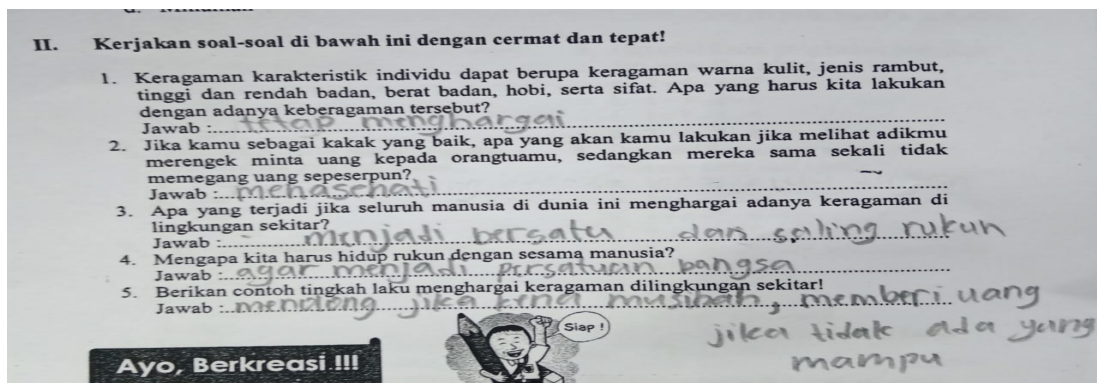 II. Kerjakan soal-soal di bawah ini dengan cermat dan tepat!
1. Keragaman karakteristik individu dapat berupa keragaman warna kulit, jenis rambut,
tinggi dan rendah badan, berat badan, hobi, serta sifat. Apa yang harus kita lakukan
dengan adanya keberagaman tersebut?
Jawab : tetap menghargai
2. Jika kamu sebagai kakak yang baik, apa yang akan kamu lakukan jika melihat adikmu
merengek minta uang kepada orangtuamu, sedangkan mereka sama sekali tidak
memegang uang sepeserpun?
Jawab : menasehati
3. Apa yang terjadi jika seluruh manusia di dunia ini menghargai adanya keragaman di
lingkungan sekitar?
Jawab : menjadi bersatu dan saling rukun
4. Mengapa kita harus hidup rukun dengan sesama manusia?
Jawab : agar menjadi persatuan bangsa
5. Berikan contoh tingkah laku menghargai keragaman dilingkungan sekitar!
Jawab : menolong jika kena musibah, memberi uang
jika tidak ada yang
mampu
Siap !
Ayo, Berkreasi !!!